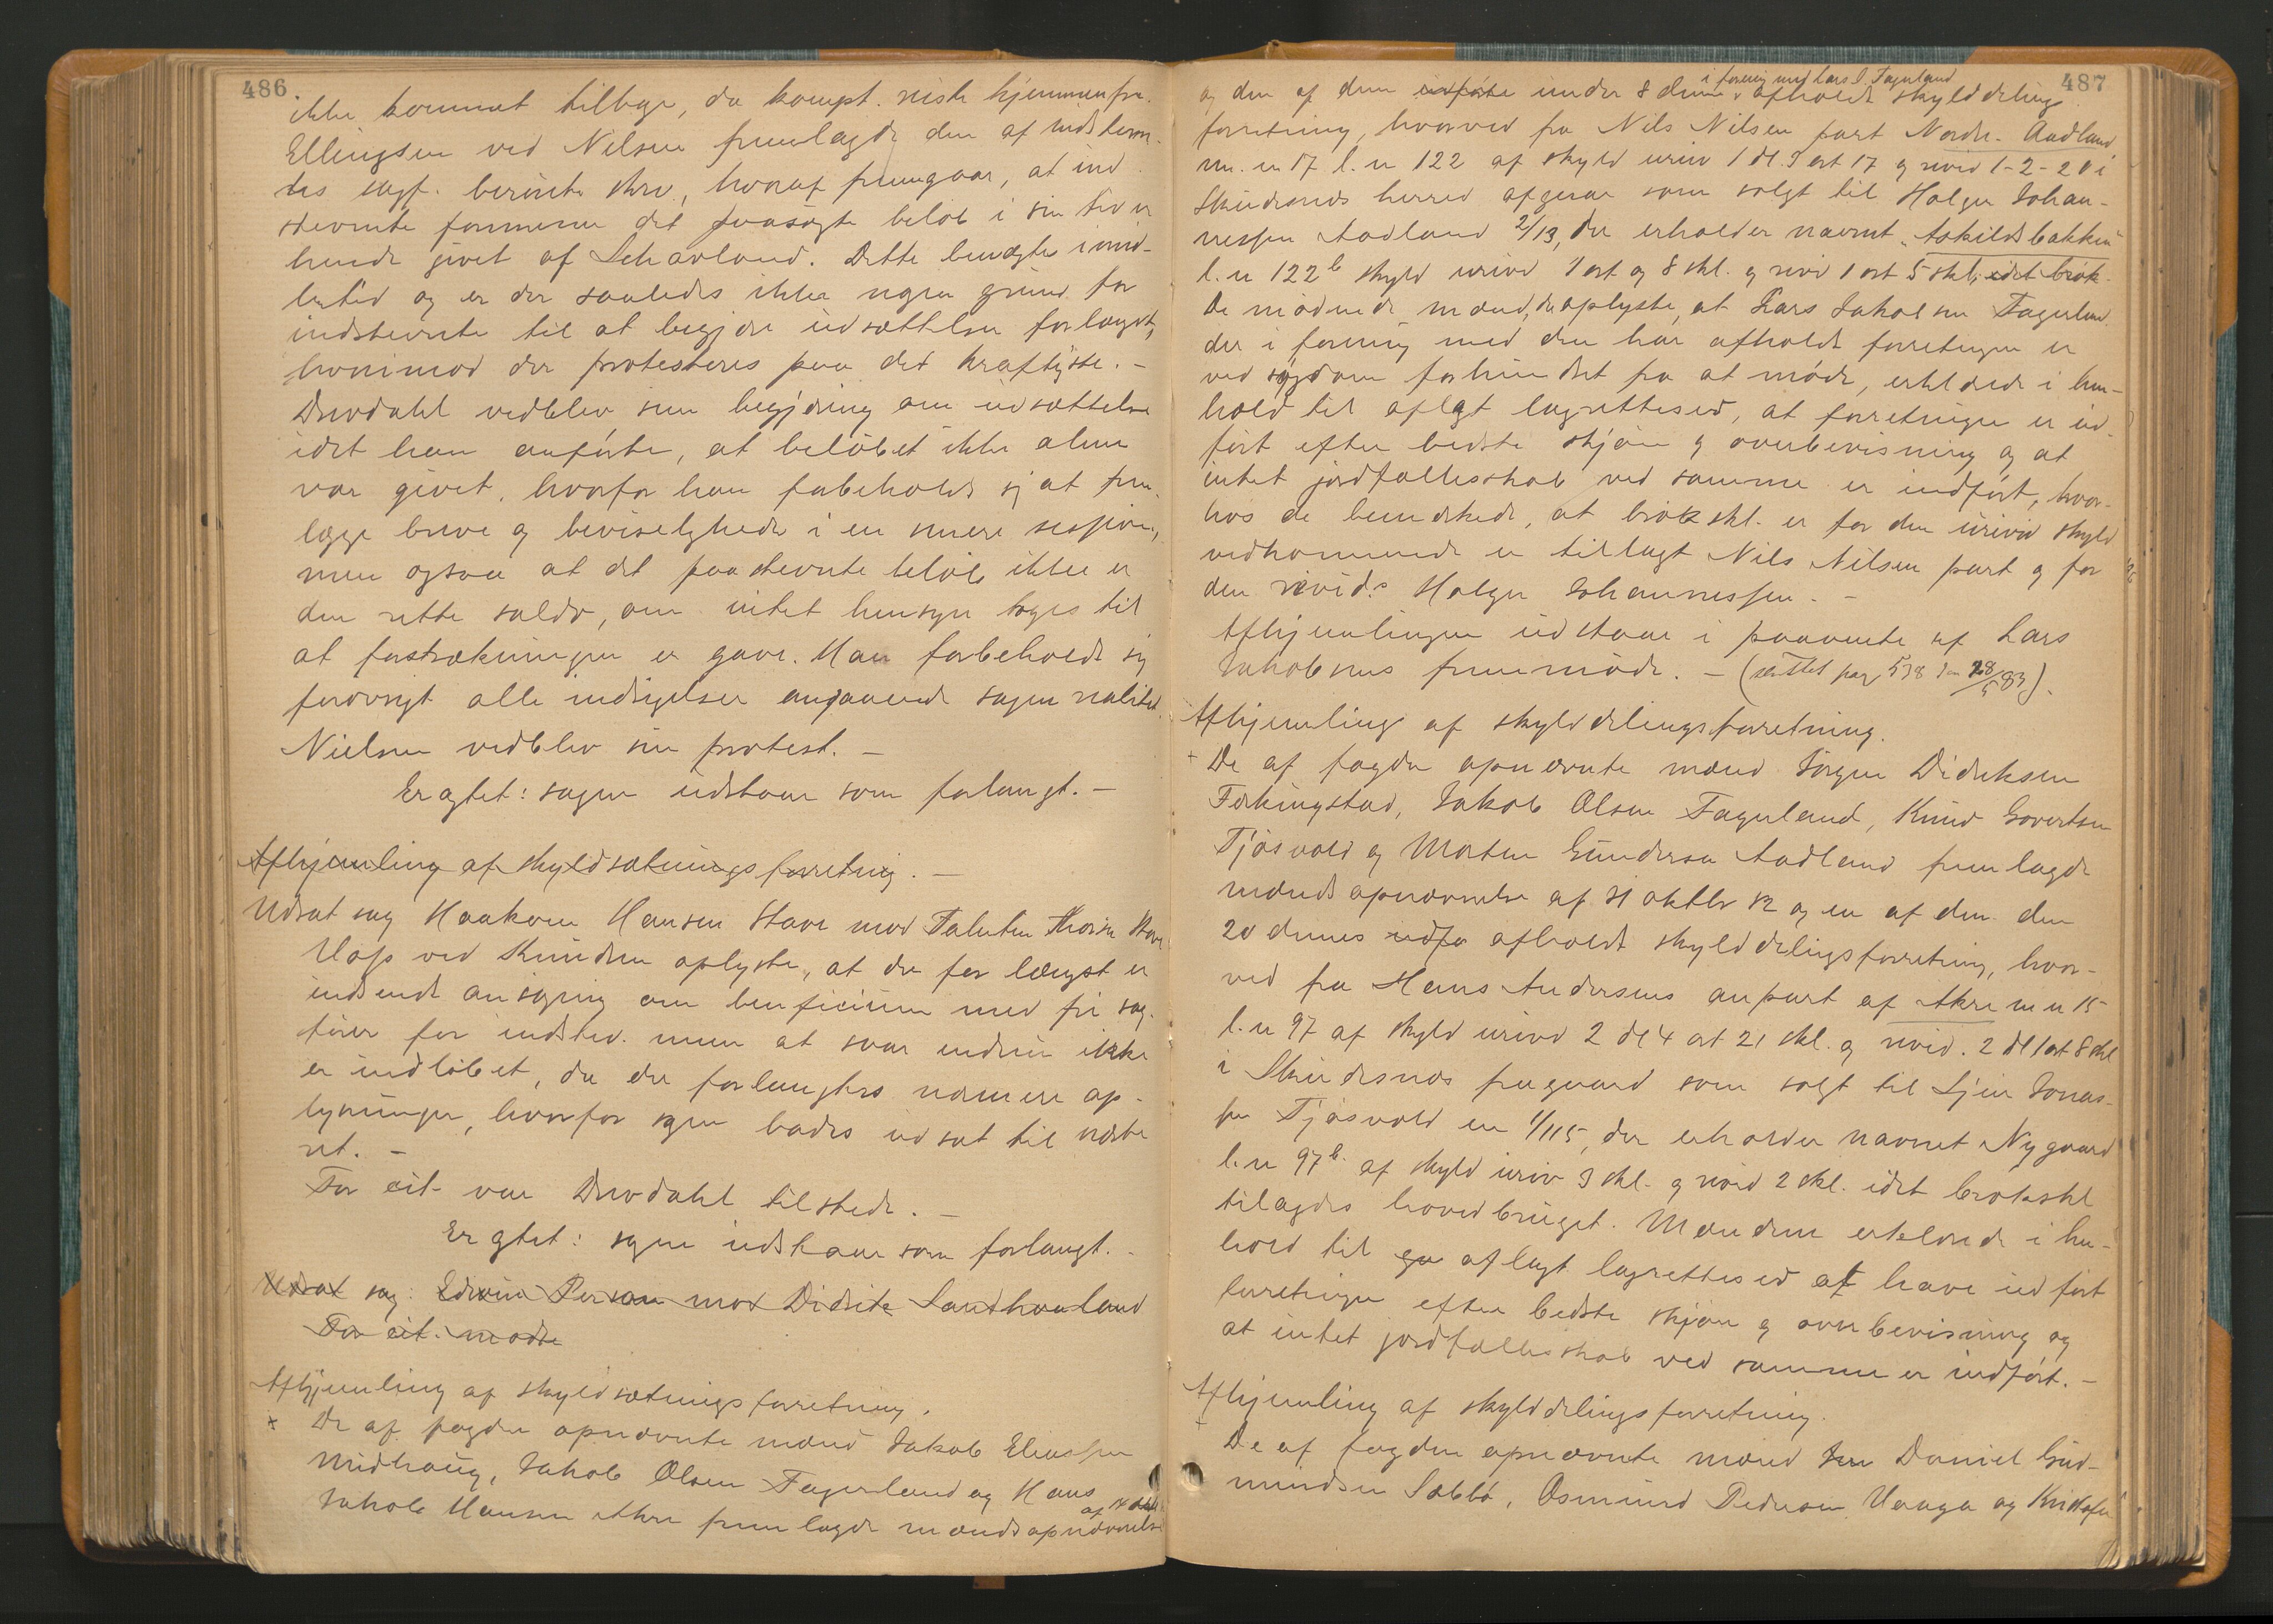 486.
ikke kommet tilbage, da kompt. reiste hjemmenfra.
Ellingsen ved Nielsen fremlagde den af indstevn-
tes sagf. berørte skr., hvoraf fremgaar, at ind
stevnte formener det paasøgte beløb i sin tid er
hende givet af Schavland. Dette benægtes imid-
lertid og er der saaledes ikke nogen grund for
indstevnte til at begjære udsættelse forlængst,
hvorimod der protesteres paa det kraftigste. -
Drevdahl vedblev sin begjæring om udsættelse
idet han anførte, at beløbet ikke alene
var givet, hvorfor han forbeholdt sig at frem-
lægge breve og beviseligheder i en senere session,
men ogsaa at det paastevnte beløb ikke er
den rette saldo, om intet hensyn toges til
at forstrækningen er gave. Han forbeholdt sig
forøvrigt alle indsigelser angaaende sagens realitet.
Nielsen vedblev sin protest. -
Eragtet: sagen udstaar som forlangt. -
Afhjemling af skyldsætningsforretning. -
Udsat sag Haakon Hansen Stave mod Stave
Vass ved Knudsen oplyste, at der for længst er
indsendt ansøgning om beneficium med fri sag-
fører for indstev. men at svar endnu ikke
er indløbet, da der forlangtes nærmere op-
lysninger, hvorfor sagen bades udsat til næste
ret. -
For cit. var Drevdahl tilstede. -
Eragtet: sagen udstaar som forlangt. -
Udsat sag: Edvin Person mod Didrik Sandhaaland
For cit. mødte
Afhjemling af skyldsætningsforretning.
x De af fogden opnævnte mænd Jakob Eliassen
Midhaug, Jakob Olsen Fagerland og Hans
Jakob Hansen Akre fremlagde mændsopnævnelse
af
487
i forening med Lars J. Fagerland
og den af dem udførte under 8 dennes afholdt skylddelings
forretning, hvorved fra Nils Nilsen part Nordre-Aadland
m. n 17 l. n 122 af skyld uriv 1 dl. 3 ort 17 og revid 1-2-20 i
Skudesnes herred afgaar som solgt til Holger Johan-
nessen Aadland 2/13, der erholder navnet "Askildsbakken"
l. n 122b skyld urivd 1 ort og 8 skl. og revid 1 ort 5 skl, idet brøk-
De mødende mænd, der oplyste, at Lars Jakobsen Fagerland
der i forening med dem har afholdt forretningen er
ved sygdom forhindret fra at møde, erklærede i hen-
hold til aflagt lagrettesed, at forretningen er ud-
ført efter bedste skjøn og overbevisning og at
intet jordfællesskab ved samme er indført, hvor-
hos de bemærkede, at brøkskl. er for den urivd skyld
vedkommende er tillagt Nils Nilsen part og for
den revids Holger Johannessen. -
Afhjemlingen udstaar i paavente af Lars
Jakobsens fremmøde. - (sluttet pag 538 den 28/5 83).
Afhjemling af skylddelingsforretning.
+ De af fogden opnævnte mænd Jørgen Didriksen
Ferkingstad, Jakob Olsen Fagerland, Knud Govertsen
Tjøsvold og Morten Gundersen Aadland fremlagde
mændsopnævnelse af 31 oktbr 82 og en af dem den
20 dennes udfø afholdt skylddelingsforretning, hvor-
ved fra Hans Andersens anpart af Akre m n 15
l. n 97 af skyld urivd 2 dl 4 ort 21 skl. og revid. 2 dl 1 ort 8 skl
i Skudesnes fragaard som solgt til Jonas-
sen Tjøsvold en 1/115, der erholder navnet Nygaard
l. n 97b. af skyld uriv 3 skl. og revid 2 skl. idet brøkskl
tillagdes hovedbruget. Mændene erklærede i hen-
hold til aflagt lagrettesed at have udført
forretningen efter bedste skjøn og overbevisning og
at intet jordfællesskab ved samme er indført. -
Afhjemling af skylddelingsforretning.
De af fogden opnævnte mænd Daniel Gud-
mundsen Sæbbø, Osmund Pedersen Vaaga og Kristofer